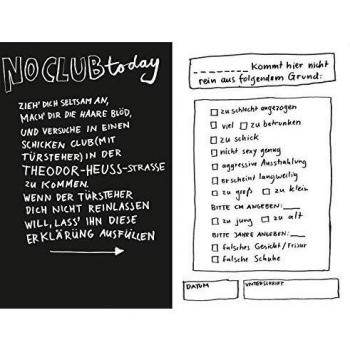 NO CLUB today
ZIEH' DICH SELTSAM AN,
MACH' DIR DIE HAARE BLÖD,
UND VERSUCHE IN EINEN
SCHICKEN CLUB (MIT
TÜRSTEHER) IN DER
THEODOR-HEUSS-STRASSE
ZU KOMMEN.
WENN DER TÜRSTEHER
DICH NICHT REINLASSEN
WILL, LASS' IHN DIESE
ERKLÄRUNG AUSFÜLLEN
_ _ _ _ _ _ _ kommt hier nicht
rein aus folgendem Grund:
zu schlecht angezogen
viel zu betrunken
zu schick
nicht sexy genug
aggressive Ausstrahlung
erscheint langweilig
zu groß zu klein
BITTE CM ANGEBEN: __
zu jung zu alt
BITTE JAHRE ANGEBEN: __
falsches Gesicht / Frisur
falsche Schuhe
DATUM UNTERSCHRIFT